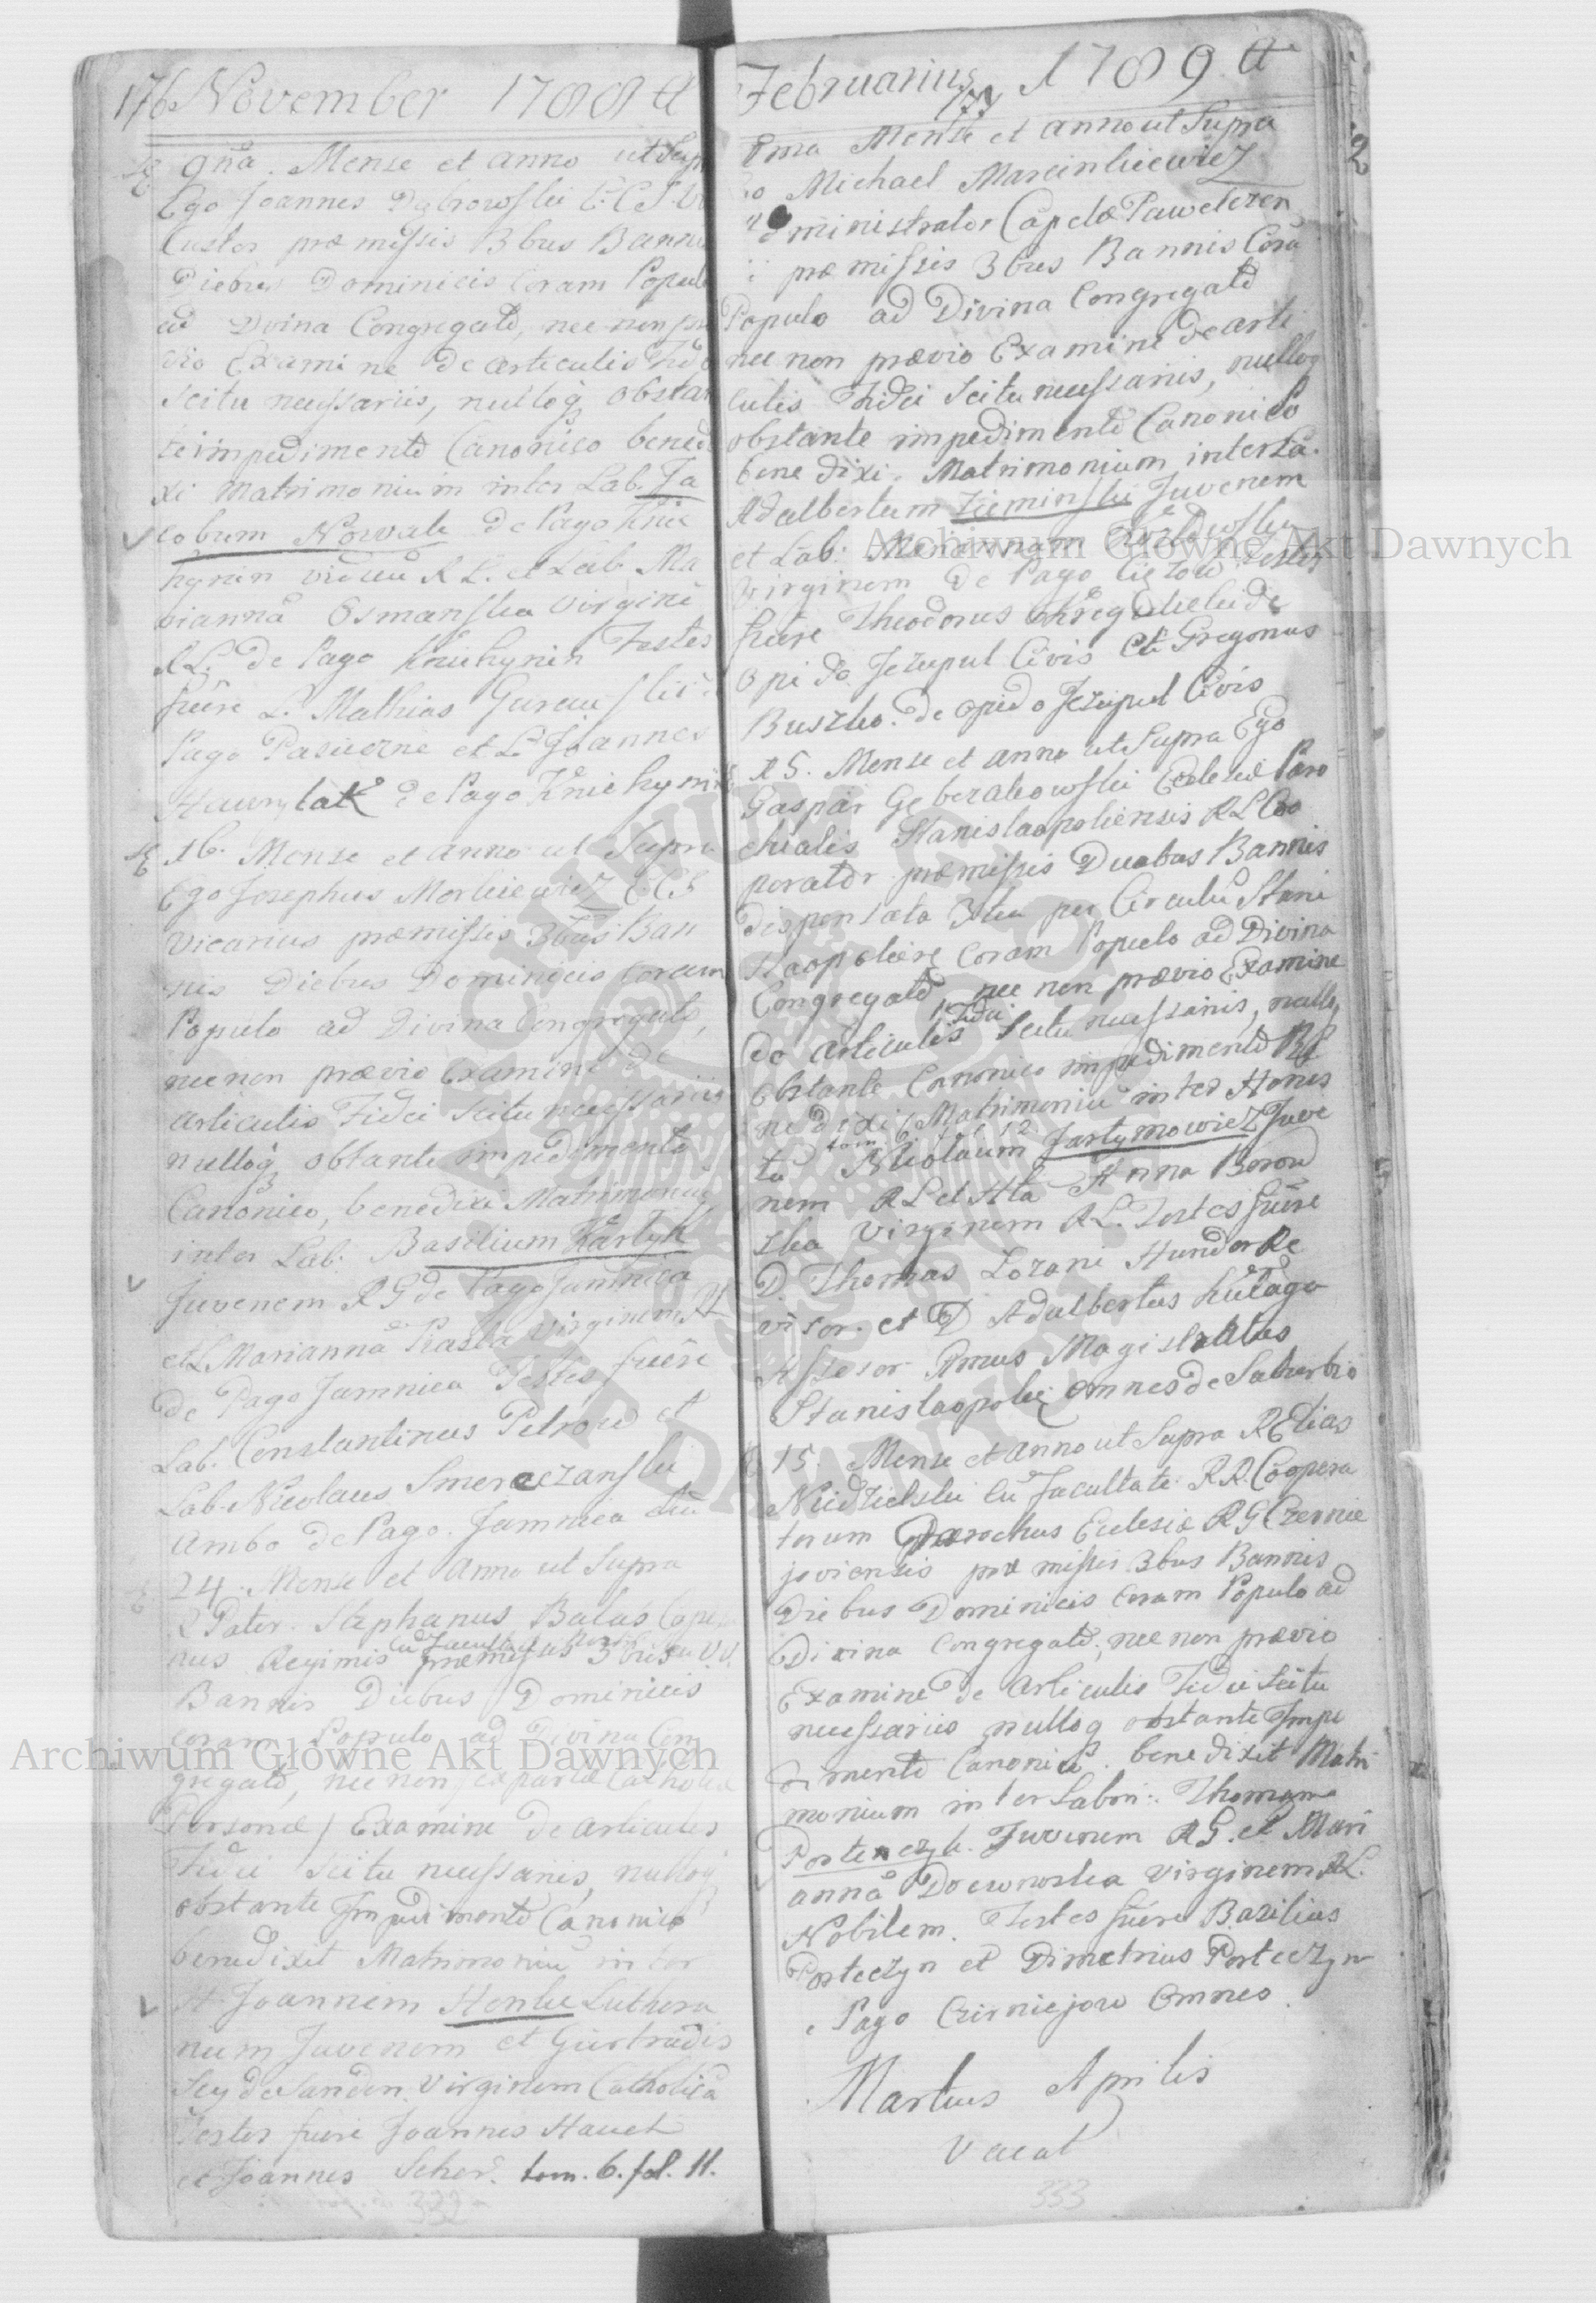 176 November 1788 A
9na. Mense et anno ut Supr
Ego Joannes Dąbrowski E. C. S. Vi
Custos præmissis 3bus Bannis
Diebus Dominicis Coram Populo
ad Divina Congregato, nec non præ
vio Examine de articulis Fidei
Scitu necessariis, nulloq obstan
te impedimento Canonico benedi
xi Matrimonium inter Lab. Ja
cobum Nowak de Pago Knie
hynin viduu R L. et Lab. Ma
rianna Osmanska Virgine
R L. de Pago Kniehynin Testes
fuere L. Mathias Gurau ski
Pago Pasieczne et L. Joannes
Hawrylak de Pago Kniehynin
16. Mense et anno ut Supra
Ego Josephus Morkiewicz E C S
Vicarius præmissis 3bus Ban
nis Diebus Dominicis Coram
Populo ad Divina Congregato,
nec non prævio Examine de
articulis Fidei Scitu necessariis
nulloq obstante impedimento
Canonico, benedixi Matrimoniu
inter Lab: Basilium Kartyk
Juvenem R G de Pago Jamnica
et L Marianna Kraska Virginem RL
de Pago Jamnica Testes fuere
Lab. Constantinus Petrow et
Lab. Nicolaus Smereczanski
ambo de Pago Jamnica
24. Mense et Anno ut Supra
R Pater Stephanus Balas Cape
nus Regiminis præmissis 3bus
Bannis Diebus Dominicis
coram Populo ad Divina Con
gregato, nec non ex parte Catholica
Personæ / Examine de articulis
Fidei Scitu necessariis, nulloq
obstante Impedimento Canonico
benedixit Matrimoniu inter
H. Joannem Henke Luthera
num Juvenem et Gertrudis
Seydesanden Virginem Catholica
Testes fuere Joannes Hauch
et Joannes Scher. tom. 6. fol. 11.
332
Februarius 1789 A
177
Ima Mense et anno ut Supra
Michael Marcinkiewicz
Administrator Capelæ Pawelczen
præmissis 3bus Bannis Cora
Populo ad Divina Congregato
nec non prævio Examine de arti
culis Fidei Scitu necessariis, nulloq
obstante impedimento Canonico
benedixi Matrimonium inter La.
Adalbertum Zieminski Juvenem
et Lab: Mariannam
Virginem de Pago Ciężow Testes
fuere Theodorus de
opido Jezupul Civis et Gregorius
Buszko de opido Jezupul Civis
15. Mense et anno ut Supra Ego
Gaspar Gębczakowski Eclesiæ Paro
chialis Stanislaopoliensis R L Coo
perator præmissis Duabus Bannis
Dispensata 3tia per Circulu Stani
slaopoliens Coram Populo ad Divina
Congregato nec non prævio Examine
de articulis Fidei Scitu necessariis, nulloq
obstante Canonico impedimento Be
nedixi Matrimoniu inter Hones
tom. 6. fol. 12
tu Nicolaum Jartymowicz Juve
nem R L et Hta Anna Borow
ska Virginem R L. Testes fuere
D. Thomas Lozani Hundor Re
visor et D Adalbertus Kulaga
Assesor Primus Magistratus
Stanislaopoli omnes de Suburbio
15. Mense et anno ut Supra R Elias
Niedzielski cu Facultate R R. Coopera
torum Parochus Eclesiæ R G Czernie
joviensis præmissis 3bus Bannis
Diebus Dominicis Coram Populo ad
Divina Congregato, nec non prævio
Examine de Articulis Fidei Scitu
necessariis nulloq obstante Impe
dimento Canonico benedixit Matri
monium inter Labor: Thomam
Porteczyk Juvenem R G. et Mari
anna Drewnoska Virginem R L.
Nobilem. Testes fuere Basilius
Porteczyn et Dimetrius Porteczyn
Pago Czerniejow Omnes
Martius Aprilis
Vacat
333
Archiwum Główne Akt Dawnych
Archiwum Główne Akt Dawnych
ARCHIWUM GŁÓWNE AKT DAWNYCH